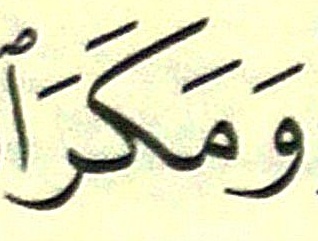 وَمَكَرَ ٱ